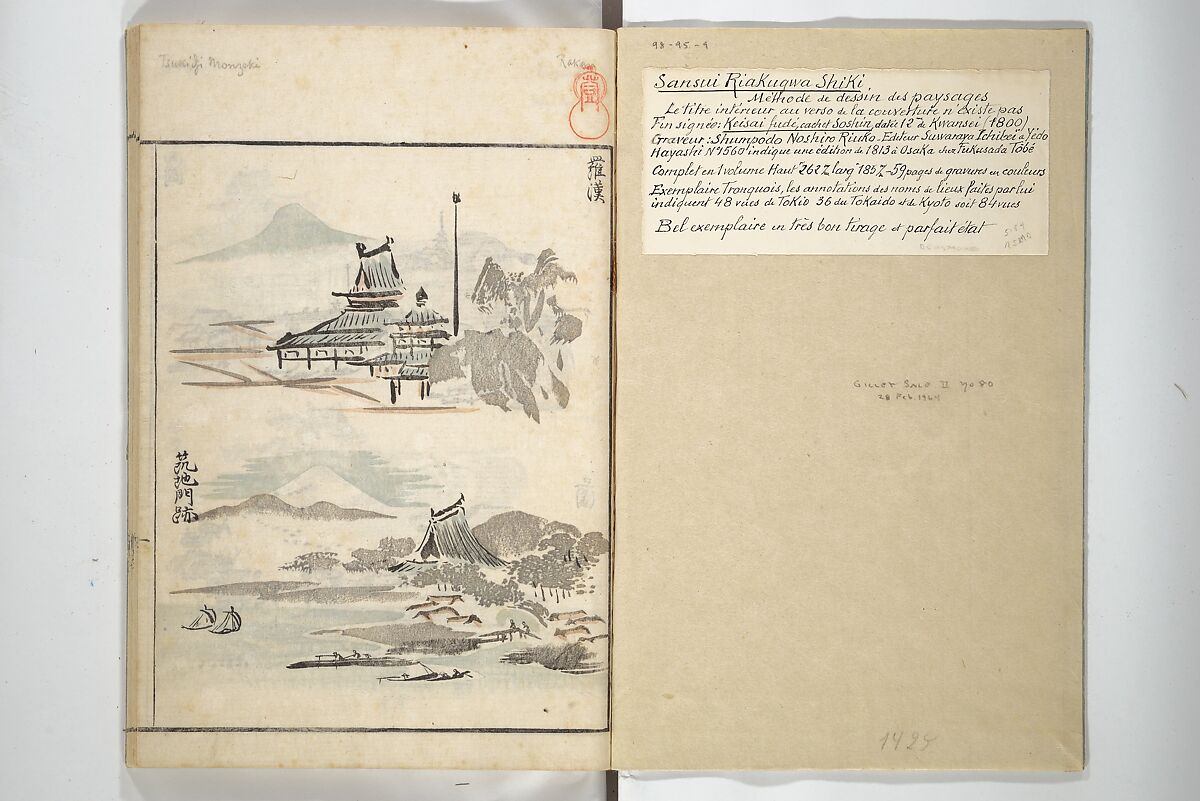 Tsukidji Monzeki
Rakan
羅漢
筑地門跡
98-95-9
Sansui Riakugwa Shiki
Méthode de dessin des paysages
Le titre intérieur au verso de la couverture n'existe pas
Fin signée: Keisai fudé, cachet Soshin, daté 12e de Kwansei (1800)
Graveur: Shumpodo Noshiro Riuko. Editeur Suwaraya Ichibei à Yédo
Hayashi No 1560 indique une édition de 1813 à Osaka chez Fukusada Tobé
Complet en 1 volume Haut 262 % larg 185 % - 59 pages de gravures en couleurs
Exemplaire Tronquois, les annotations des noms de lieux faites par lui
indiquent 48 vues de Tokio 36 du Tokaido et de Kyoto soit 84 vues
Bel exemplaire en très bon tirage et parfait état
GILLOT SALE II No 80
28 Feb. 1964